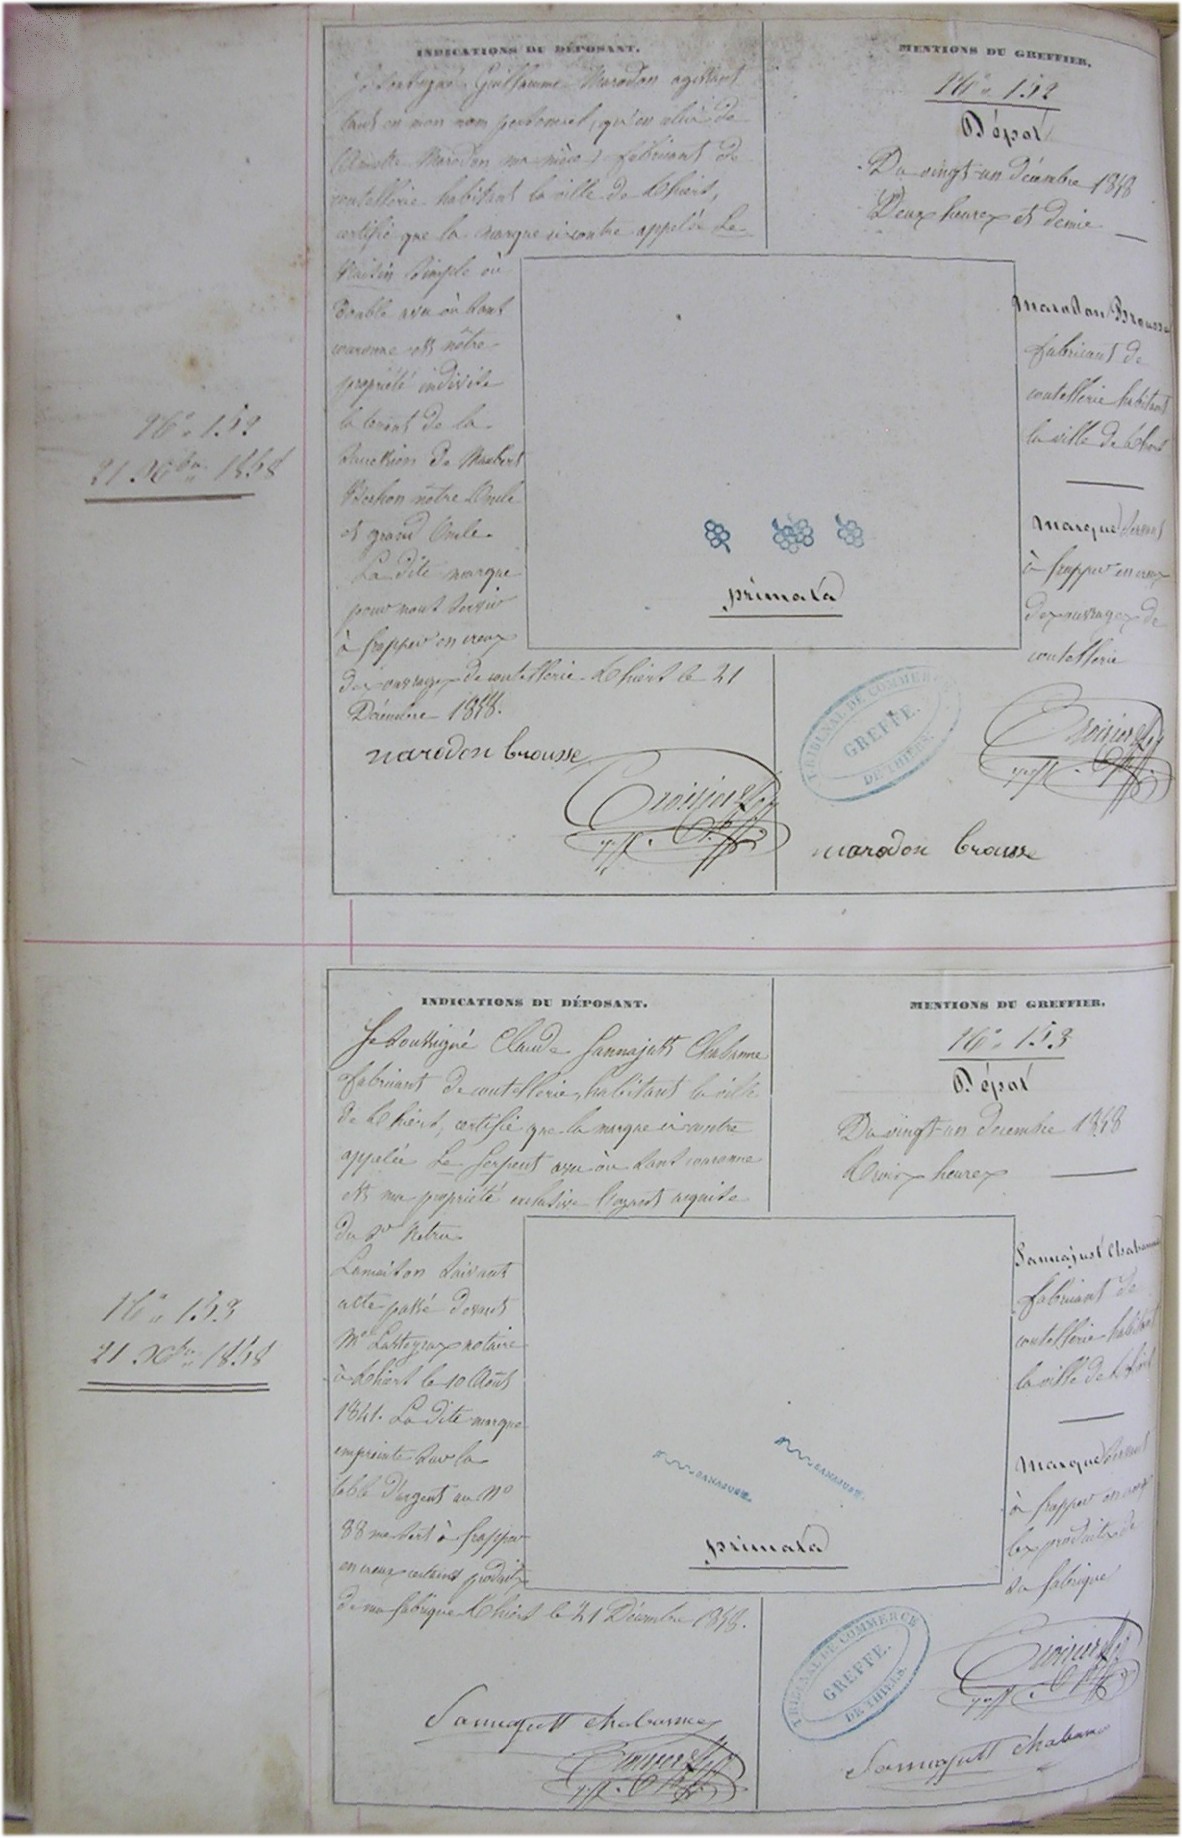 INDICATIONS DU DÉPOSANT.
Guillaume Marodon agissant
tant en mon nom personnel, qu'en celui de
Marodon ma mère, fabricant de
coutellerie habitant la ville de Thiers,
certifie que la marque ci contre appelée Le
Raisin simple ou
double avec ou sans
couronne est nôtre
propriété indivise
la tenant de la
succession de
notre Oncle
et grand Oncle.
La dite marque
pour nous servir
à frapper en creux
des ouvrages de coutellerie. Thiers le 21
Décembre 1858.
marodon brousse
MENTIONS DU GREFFIER.
N° 152
Dépôt
Du vingt-un décembre 1858
Deux heures et demie
Marodon Brousse
fabricant de
coutellerie habitant
la ville de Thiers
Marque servant
à frapper en creux
des ouvrages de
coutellerie
primata
TRIBUNAL DE COMMERCE
GREFFE.
DE THIERS.
marodon brousse
N° 152
21 Xbre 1858
INDICATIONS DU DÉPOSANT.
Je soussigné Claude Sannajust Chabanne
fabricant de coutellerie, habitant la ville
de Thiers, certifie que la marque ci contre
appelée Le Serpent avec ou sans couronne
est ma propriété exclusive l'ayant acquise
du Sr
Lamaison suivant
acte passé devant
Me notaire
à Thiers le 10 Août
1841. La dite marque
empreinte sur la
table d'argent au N°
88 me sert à frapper
en creux certains produits
de ma fabrique Thiers le 21 Décembre 1858.
Sannajust chabanne
MENTIONS DU GREFFIER.
N° 153
Dépôt
Du vingt-un décembre 1858
Trois heures
Sannajust Chabanne
fabricant de
coutellerie habitant
la ville de Thiers
Marque servant
à frapper en creux
les produits de
sa fabrique
SANAJUST.
SANAJUST.
primata
TRIBUNAL DE COMMERCE
GREFFE.
DE THIERS.
Sannajust chabanne
N° 153
21 Xbre 1858